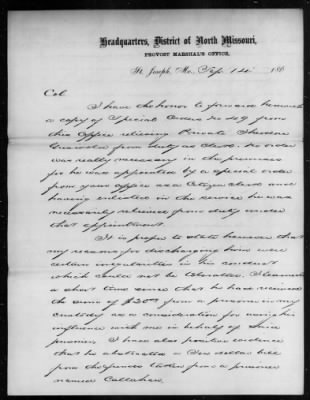 Headquarters, District of North Missouri,
PROVOST MARSHAL'S OFFICE,
St. Joseph, Mo., Sep 14 186
Col
I have the honor to forward herewith
a copy of Special Orders No 49 from
this Office relieving Private Theodore
from duty as clerk. No order
was really necessary in the premises
for he was appointed by a special order
from your office as a Citizen clerk and
having enlisted in the service he was
necessarily relieved from duty under
that appointment.
It is proper to state however that
my reasons for discharging him were
certain irregularities in his conduct
which could not be tolerated. I learned
a short time since that he had received
the sum of $20 from a prisoner in my
custody as a consideration for using his
influence with me in behalf of said
prisoner. I have also positive evidence
that he abstracted a Ten dollar bill
from taken from a prisoner
named Callahan.